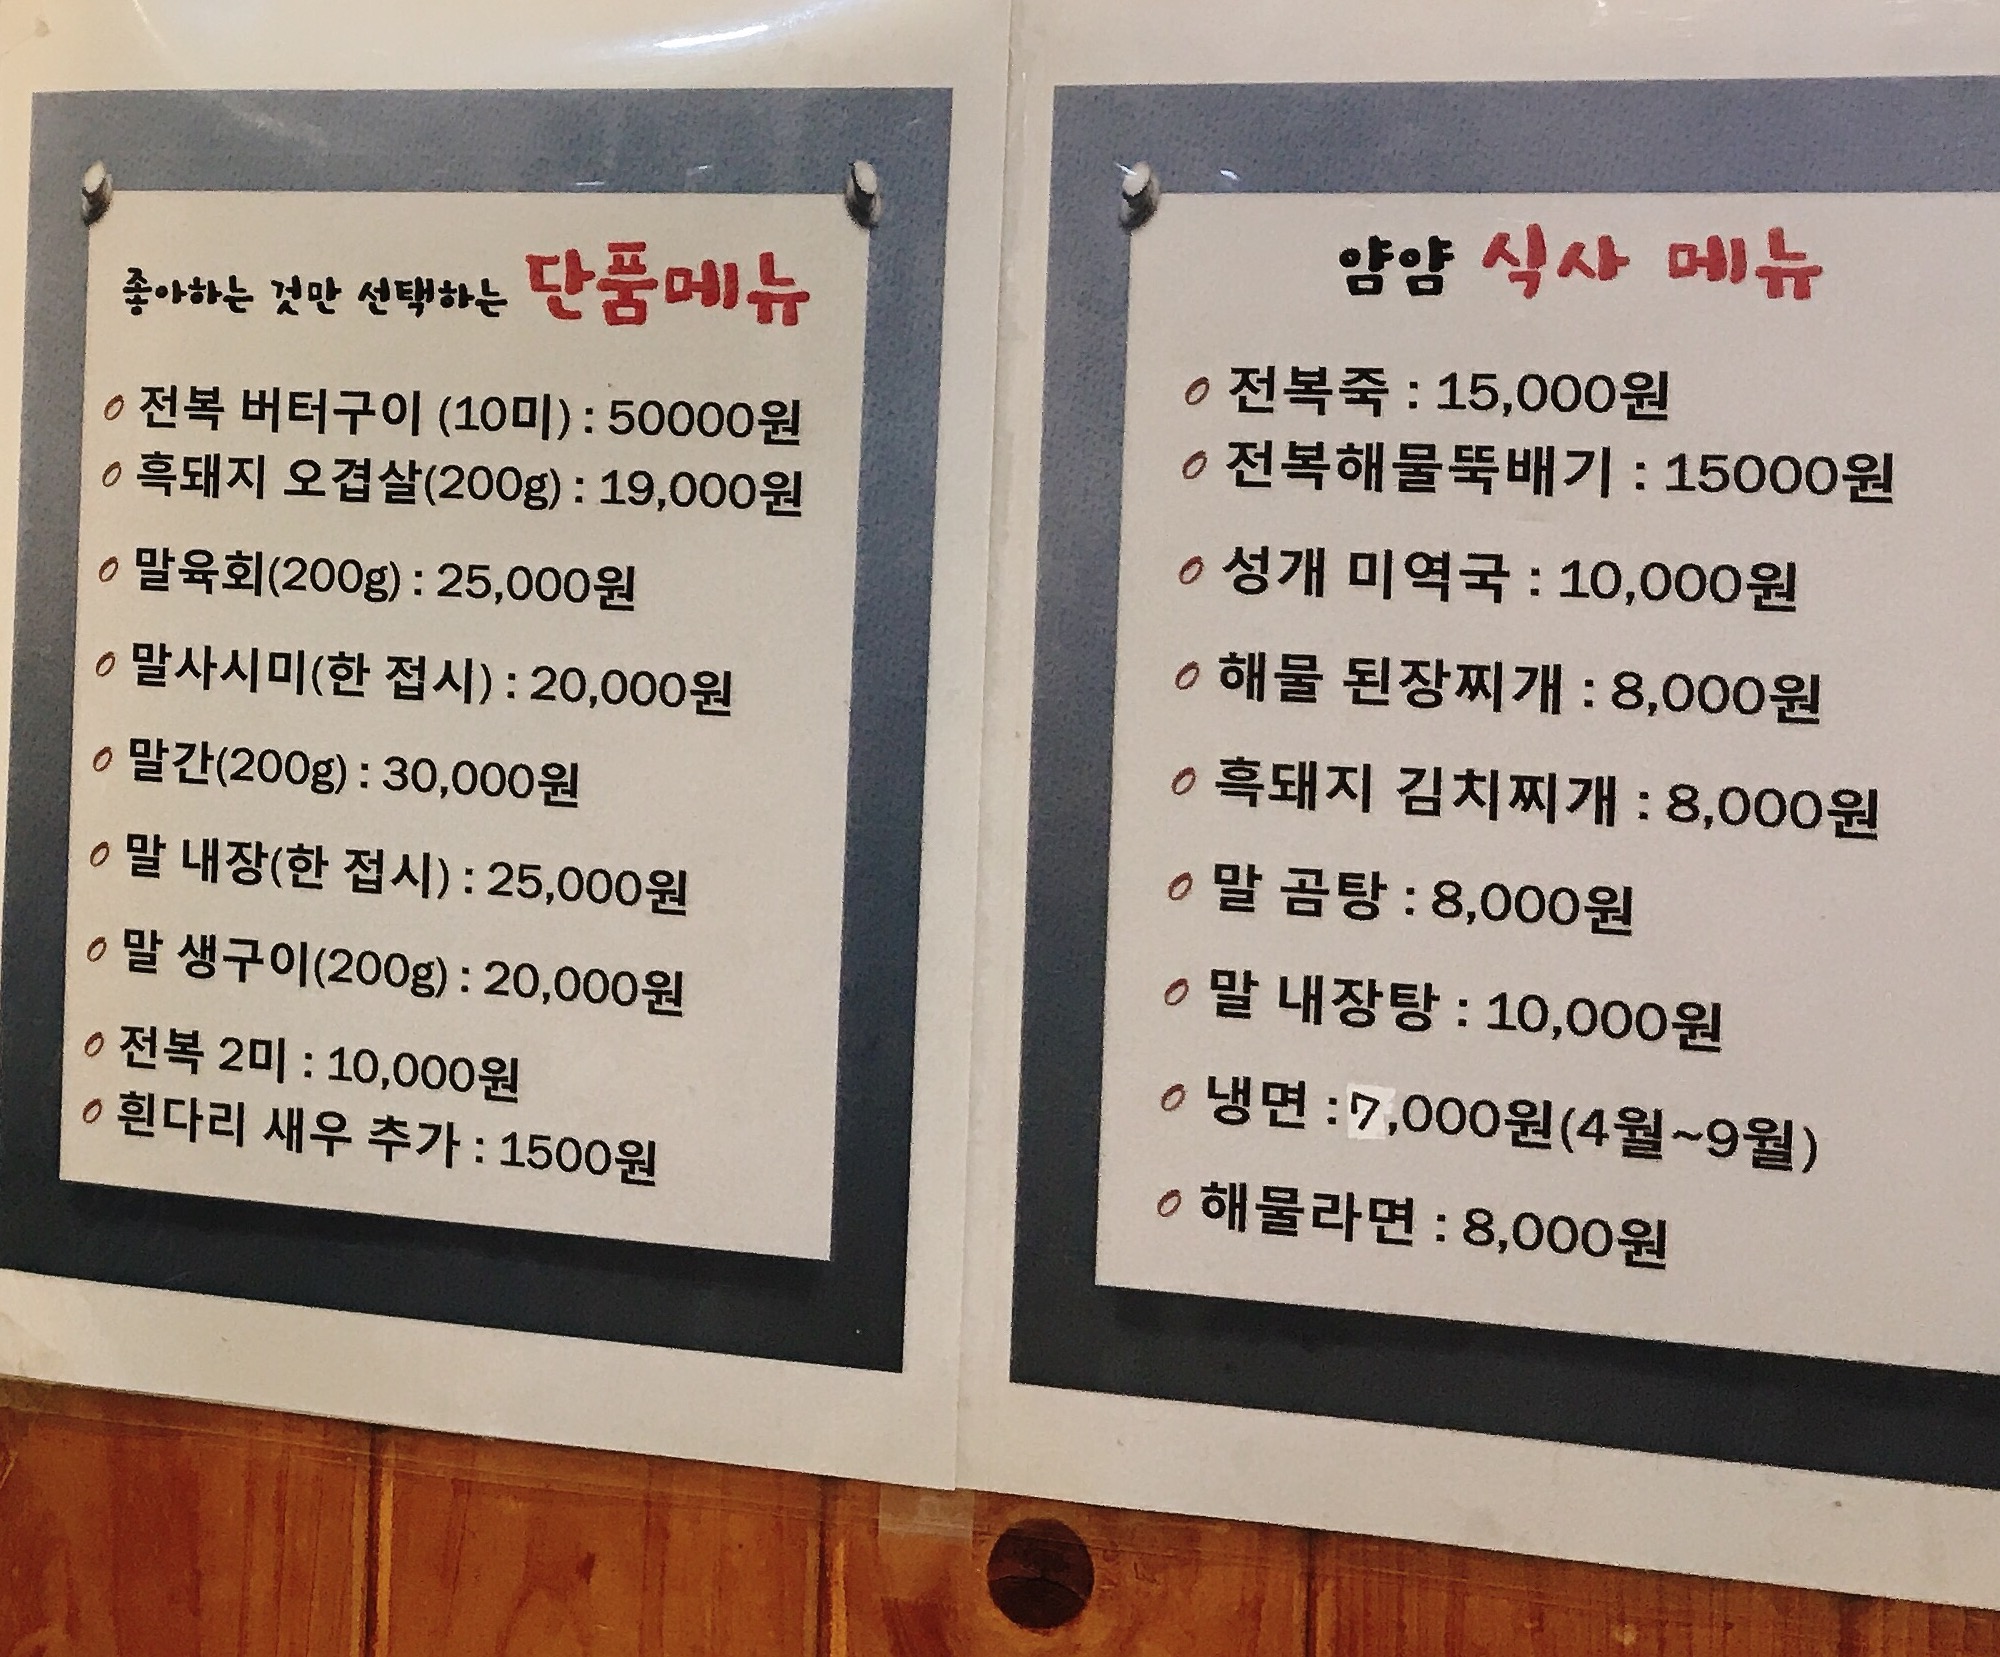 좋아하는 것만 선택하는 단품메뉴
전복 버터구이 (10미) : 50000원
흑돼지 오겹살(200g) : 19,000원
말육회(200g) : 25,000원
말사시미(한 접시) : 20,000원
말간(200g) : 30,000원
말 내장(한 접시) : 25,000원
말 생구이(200g) : 20,000원
전복 2미 : 10,000원
흰다리 새우 추가 : 1500원
얌얌 식사 메뉴
전복죽 : 15,000원
전복해물뚝배기 : 15000원
성개 미역국 : 10,000원
해물 된장찌개 : 8,000원
흑돼지 김치찌개 : 8,000원
말 곰탕 : 8,000원
말 내장탕 : 10,000원
냉면 : 7,000원(4월~9월)
해물라면 : 8,000원